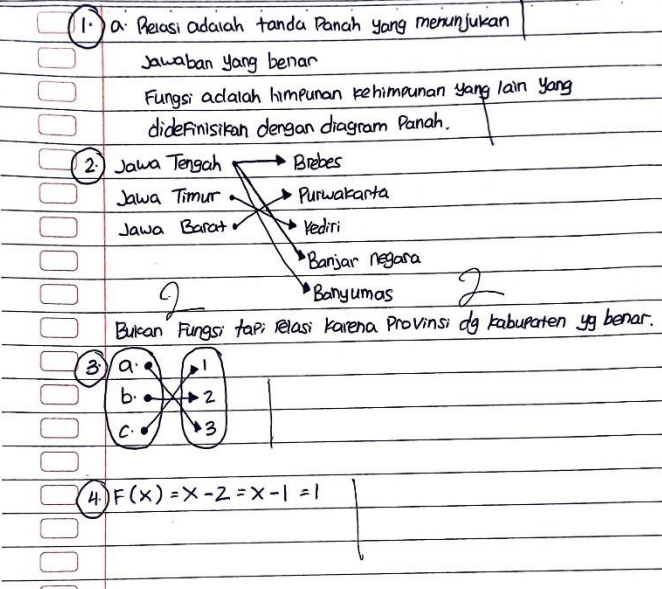 1. a. Relasi adalah tanda Panah yang menunjukan
Jawaban yang benar
Fungsi adalah himpunan kehimpunan yang lain yang
didefinisikan dengan diagram Panah.
2. Jawa Tengah Brebes
Jawa Timur Purwakarta
Jawa Barat Kediri
Banjar negara
Banyumas
2 2
Bukan Fungsi tapi relasi karena Provinsi dg kabupaten yg benar.
3. a. 1
b. 2
c. 3
4. F(x) = x - 2 = x - 1 = 1